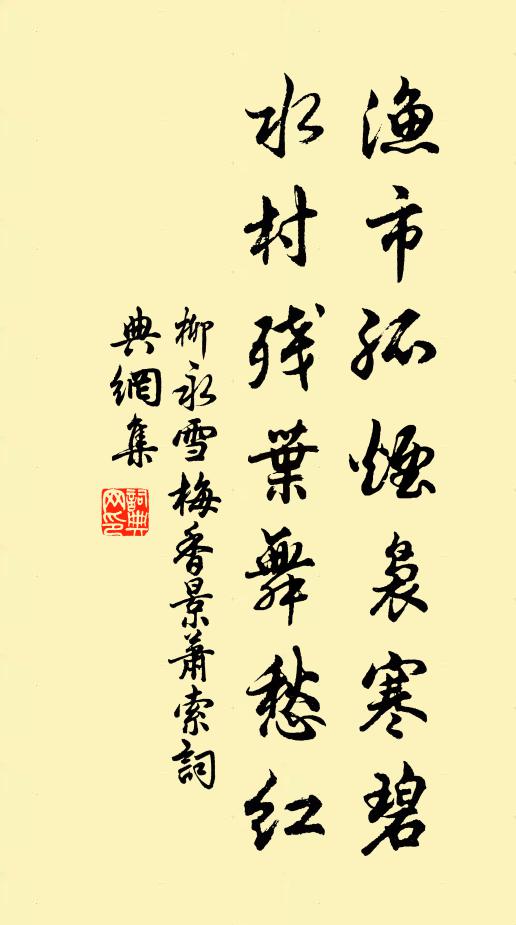 漁市孤煙裊寒碧
水村残葉舞愁红
柳永雪梅香景蕭索詞
典網集
詞典网印